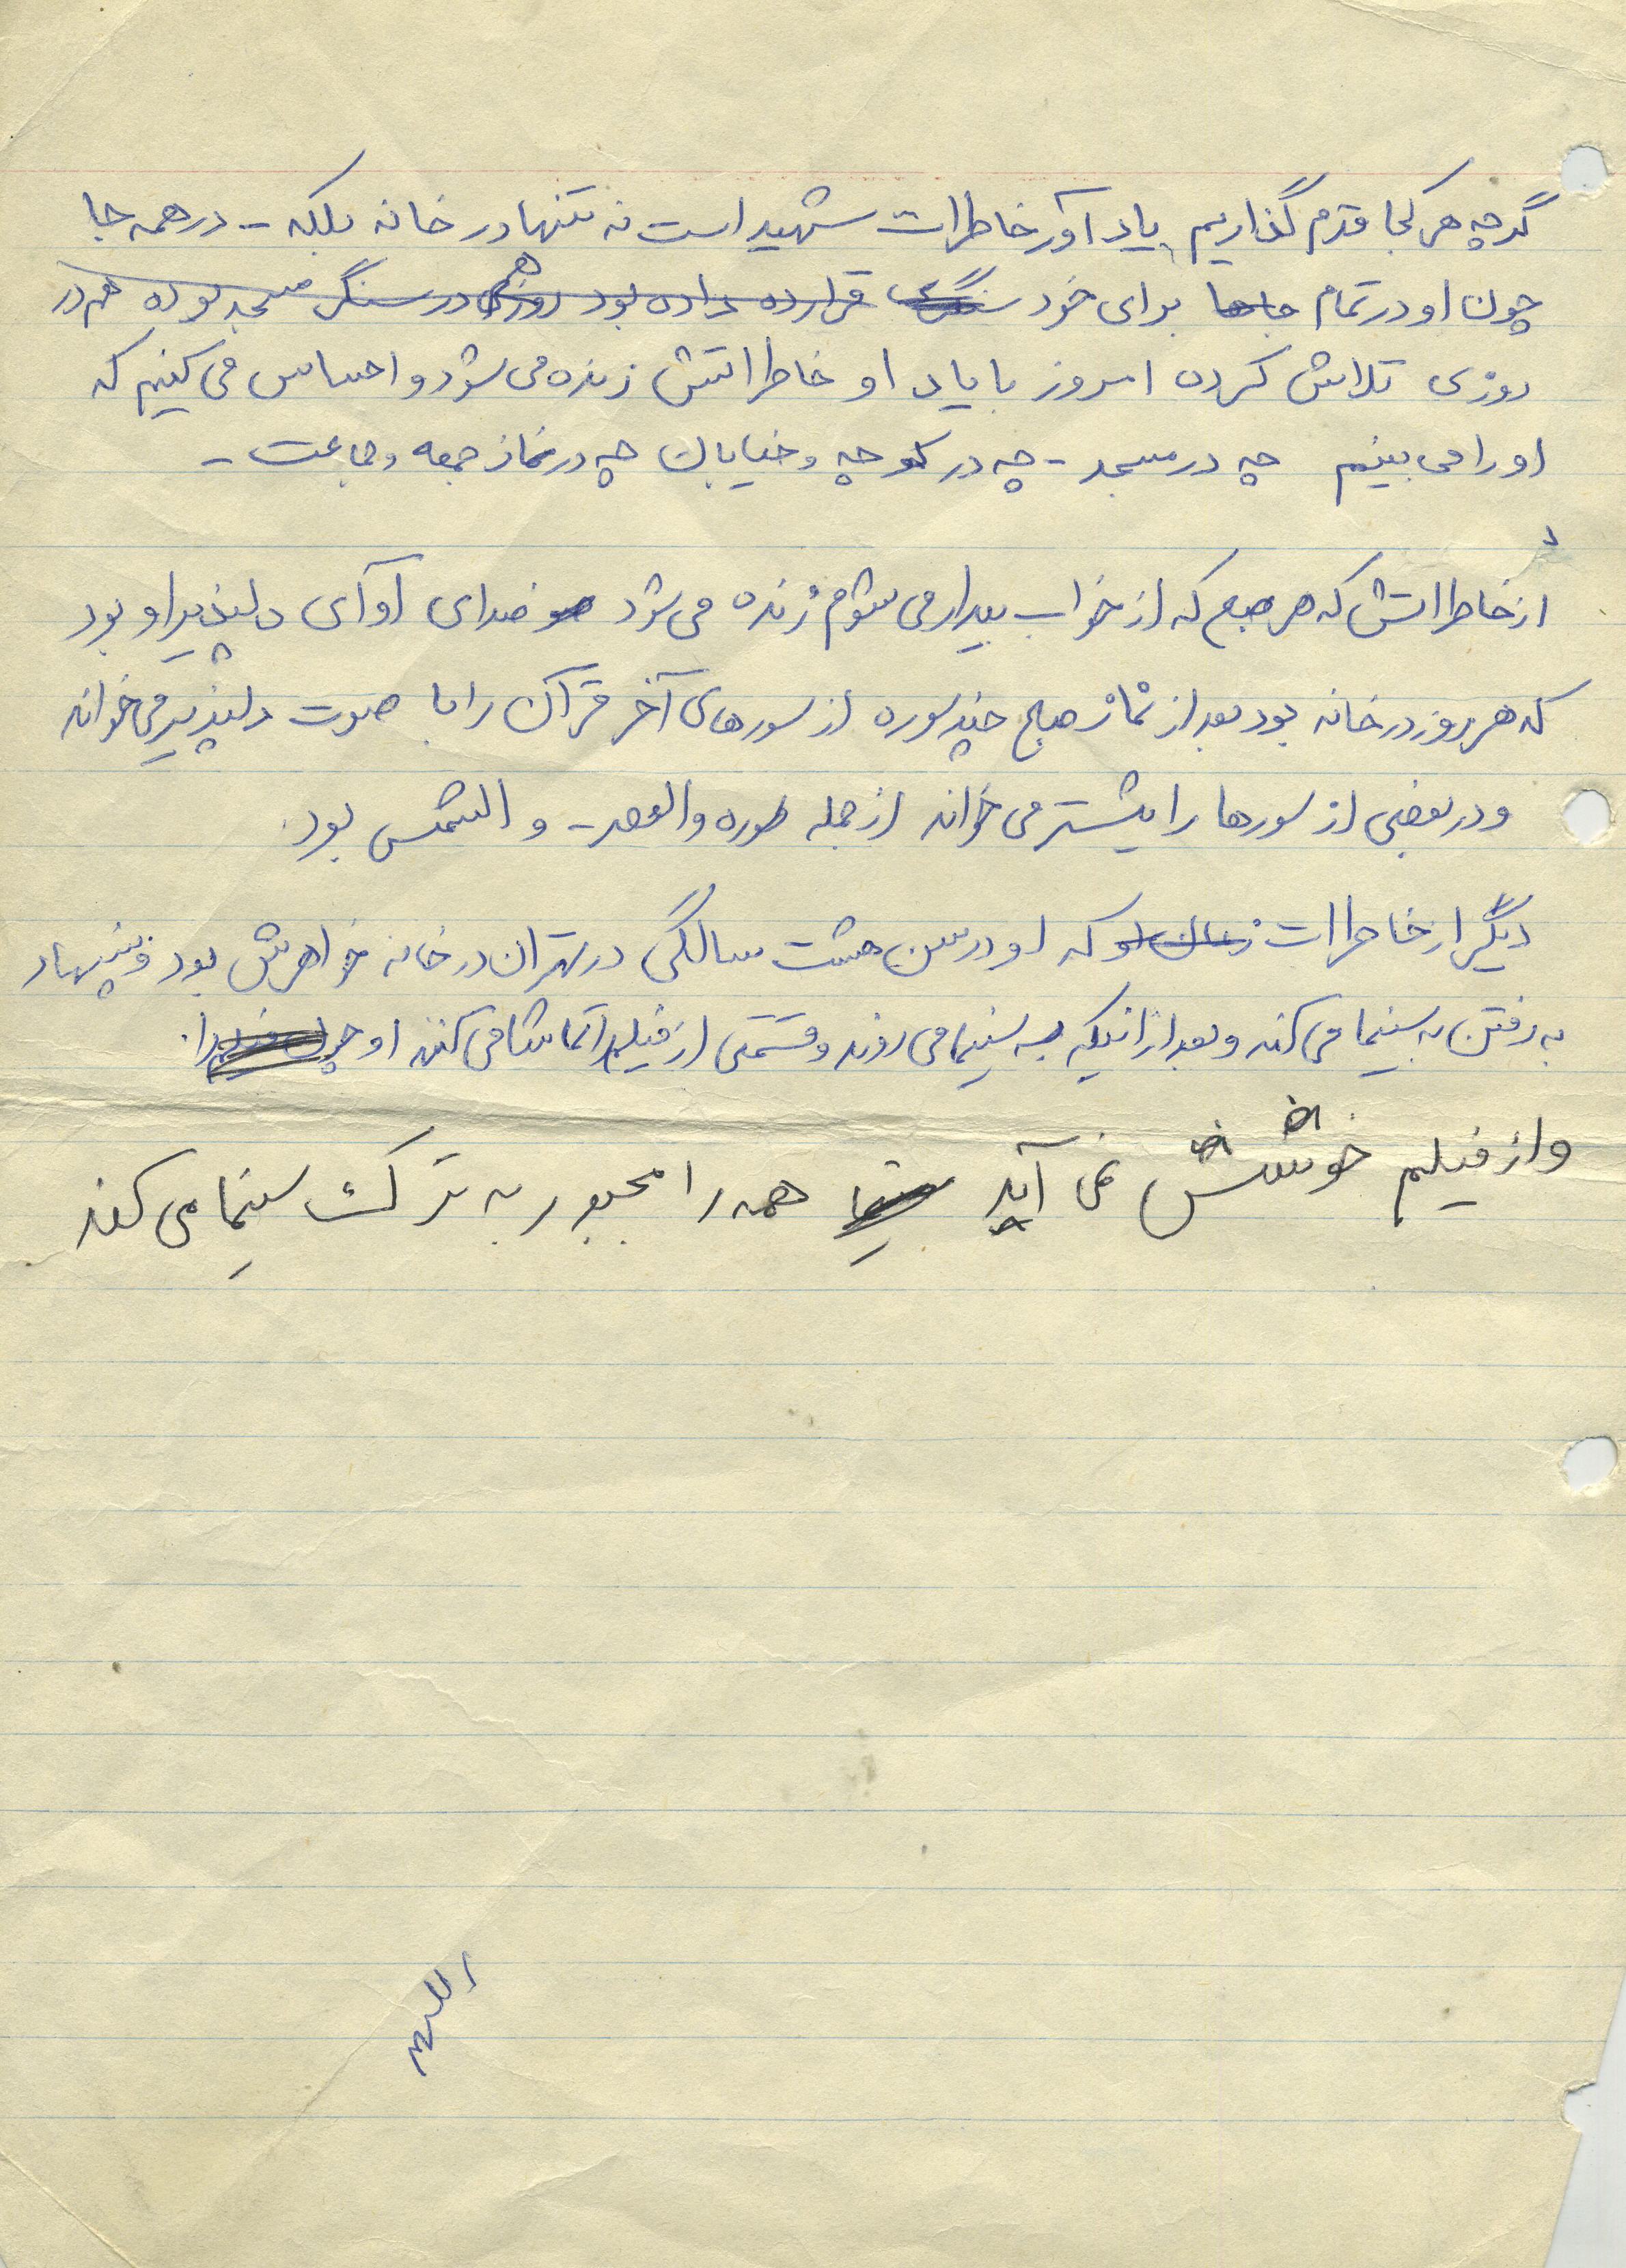 گرچه هر کجا قدم گذاریم یاد آور خاطرات شهید است نه تنها در خانه بلکه - در همه جا
چون او در تمام جاها برای خود سنگری قرار ده داده بود روزی هم در سنگر مسجد بوده هم در
روزی تلاش کرده امروز با یاد او خاطراتش زنده می شود و احساس می کنیم که
او را می بینیم چه در مسجد - چه در کوچه و خیابان چه در نماز جمعه و جماعت -
از خاطراتش که هر صبح که از خواب بیدار می شوم زنده می شود صدای آوای دلپذیر او بود
که هر روز در خانه بود بعد از نماز صبح چند سوره از سورهای آخر قرآن را با صوت دلپذیر می خواند
و در بعضی از سورها را بیشتر می خواند از جمله سوره والعصر - و الشمس بود.
دیگر از خاطرات که او در سن هشت سالگی در تهران در خانه خواهرش بود و پیشنهاد
به رفتن به سینما می کند و بعد از اینکه به سینما می روند و قسمتی از فیلم را تماشا می کنند او چون
و از فیلم خوشش نمی آید همه را مجبور به ترک سینما می کند